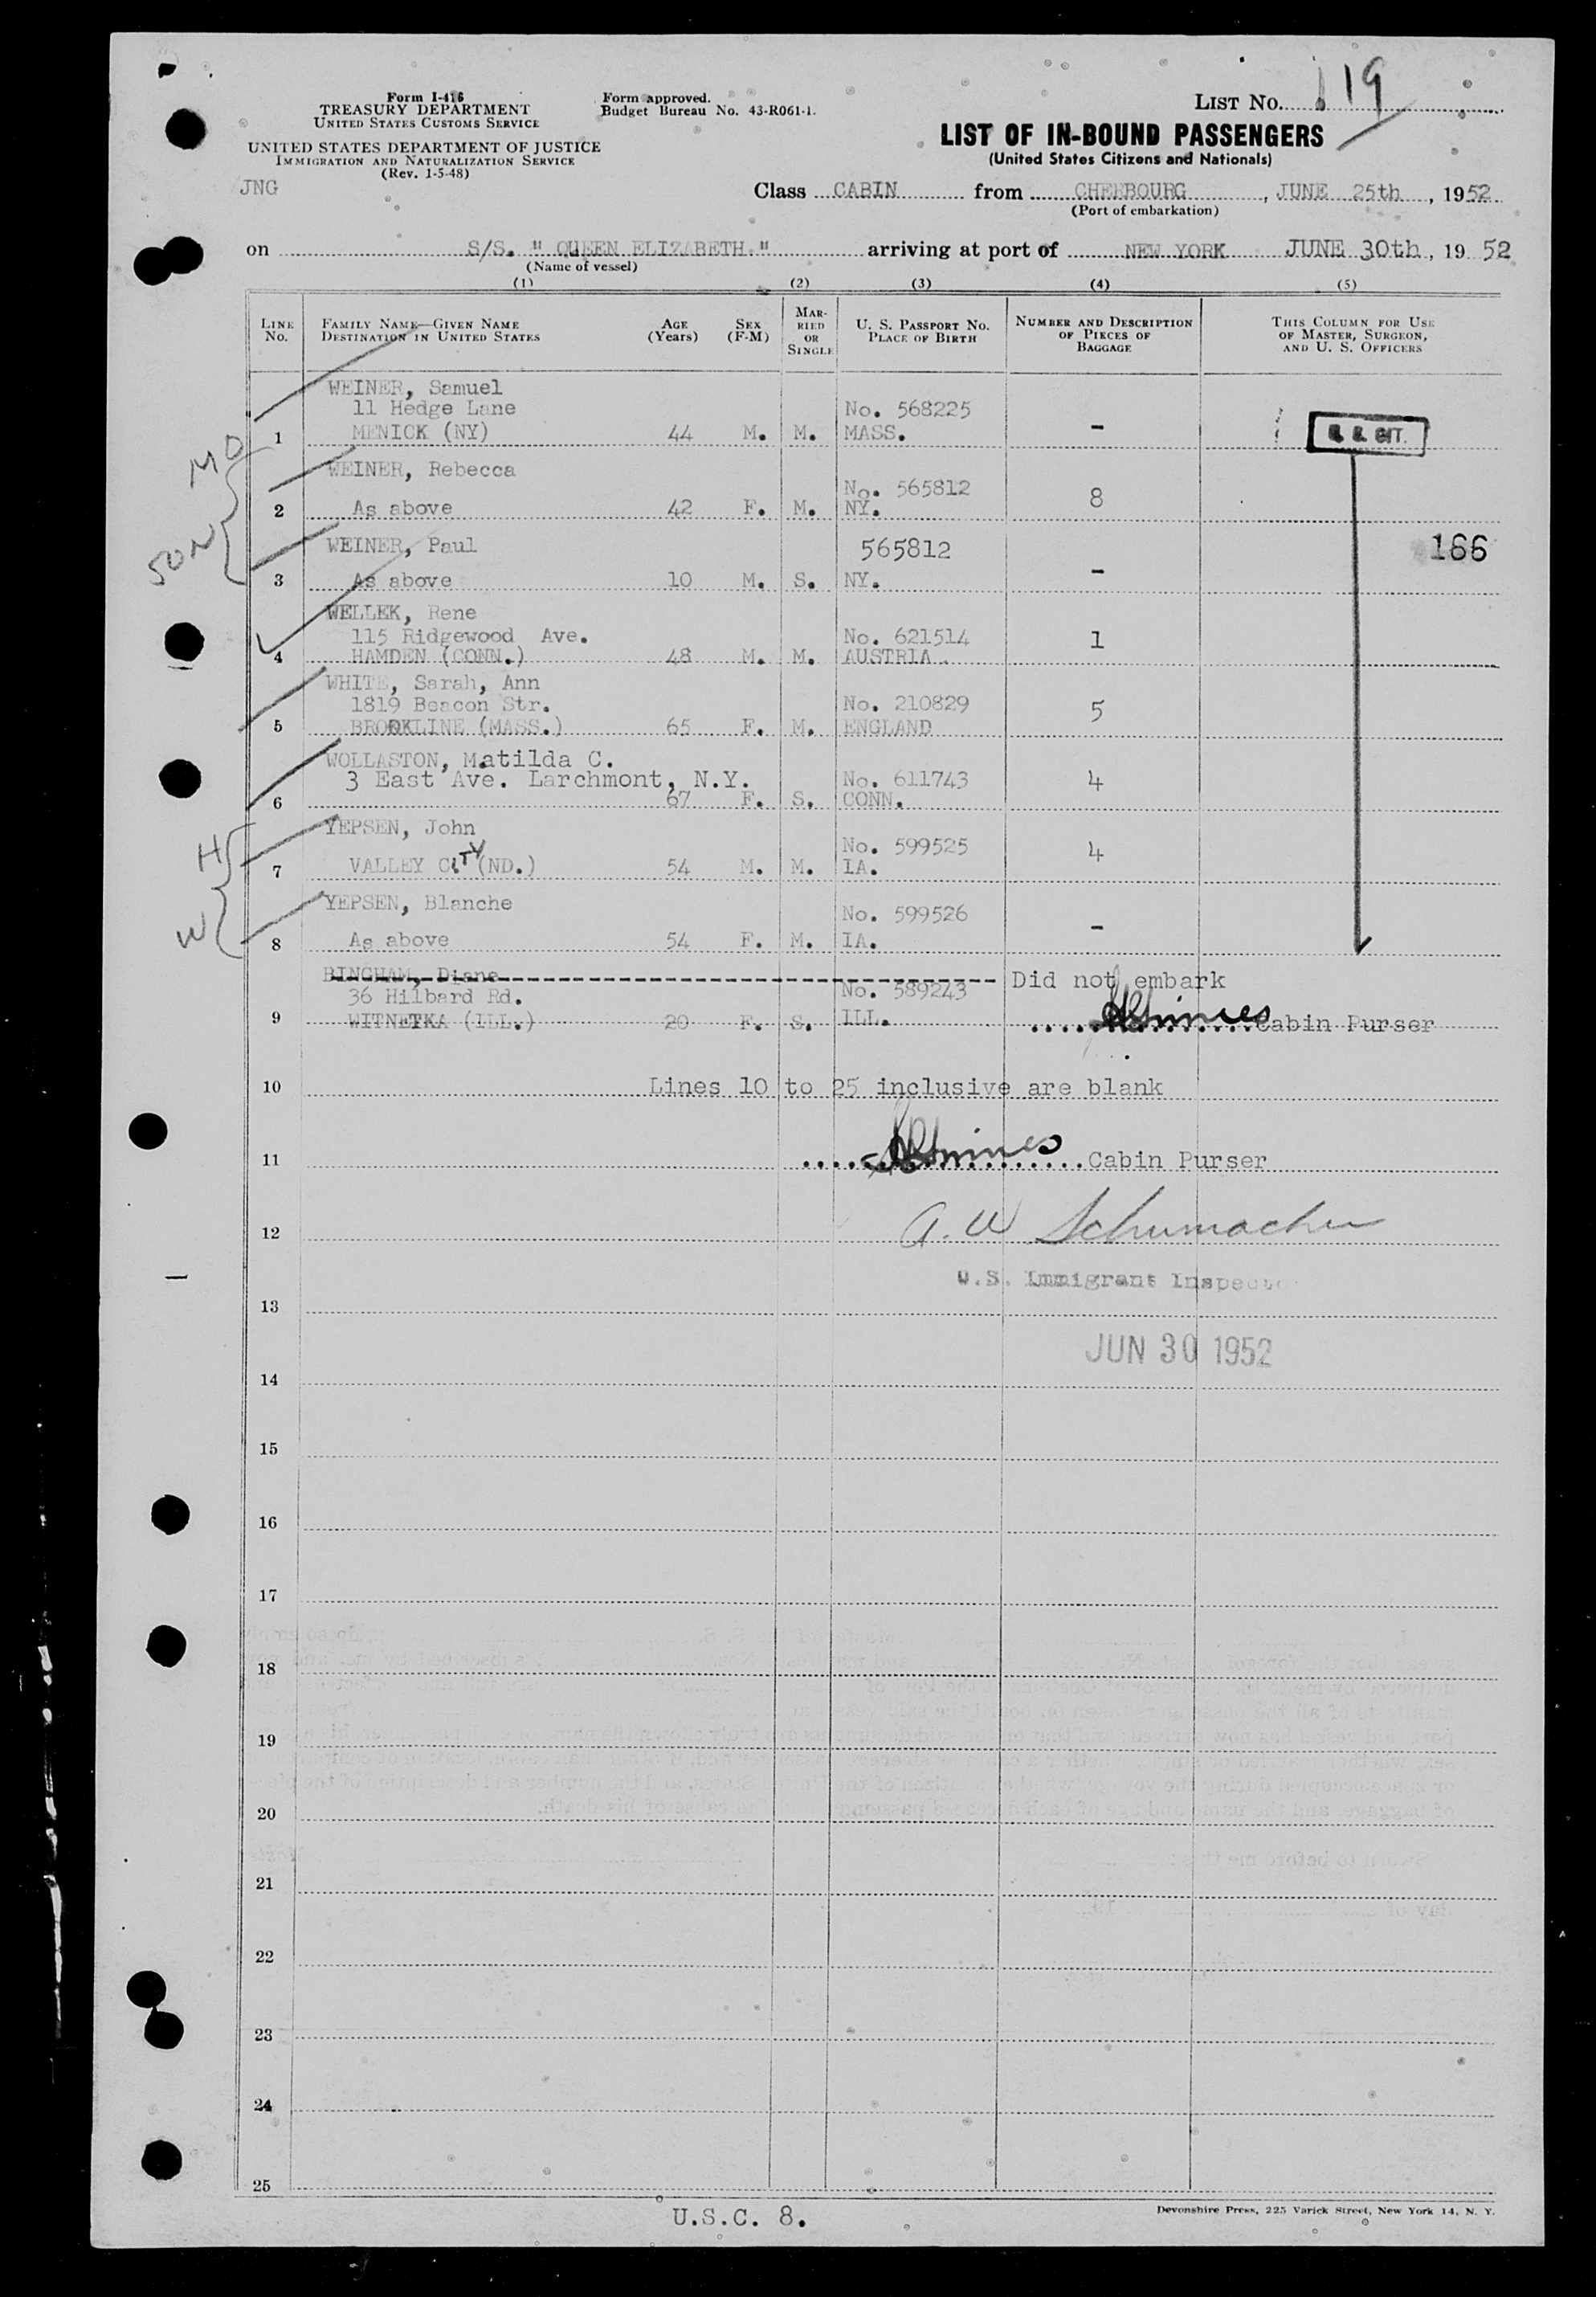 Form I-416
TREASURY DEPARTMENT
UNITED STATES CUSTOMS SERVICE
UNITED STATES DEPARTMENT OF JUSTICE
IMMIGRATION AND NATURALIZATION SERVICE
(Rev. 1-5-48)
JNG
Form approved.
Budget Bureau No. 43-R061-1.
LIST No. 119
LIST OF IN-BOUND PASSENGERS
(United States Citizens and Nationals)
Class CABIN from CHERBOURG, JUNE 25th, 1952
(Port of embarkation)
on S/S. " QUEEN ELIZABETH " arriving at port of NEW YORK JUNE 30th, 19 52
(Name of vessel)
(1) (2) (3) (4) (5)
LINE No.
FAMILY NAME—GIVEN NAME
DESTINATION IN UNITED STATES
AGE (Years)
SEX (F-M)
MARRIED OR SINGLE
U. S. PASSPORT NO.
PLACE OF BIRTH
NUMBER AND DESCRIPTION OF PIECES OF BAGGAGE
THIS COLUMN FOR USE OF MASTER, SURGEON, AND U. S. OFFICERS
WEINER, Samuel
11 Hedge Lane No. 568225
1 MENICK (NY) 44 M. M. MASS. -
MO
WEINER, Rebecca
No. 565812
2 As above 42 F. M. NY. 8
SON
WEINER, Paul 565812 166
3 As above 10 M. S. NY. -
WELLEK, Rene
115 Ridgewood Ave. No. 621514 1
4 HAMDEN (CONN.) 48 M. M. AUSTRIA.
WHITE, Sarah, Ann
1819 Beacon Str. No. 210829 5
5 BROOKLINE (MASS.) 65 F. M. ENGLAND
WOLLASTON, Matilda C.
3 East Ave. Larchmont, N.Y. No. 611743 4
6 67 F. S. CONN.
H
YEPSEN, John
No. 599525 4
7 VALLEY CITY (ND.) 54 M. M. IA.
W
YEPSEN, Blanche
No. 599526
8 As above 54 F. M. IA. -
BINGHAM, Diane Did not embark
36 Hilbard Rd. No. 589243
9 WITNETKA (ILL.) 20 F. S. ILL. Cabin Purser
10 Lines 10 to 25 inclusive are blank
11 Cabin Purser
12 A. W Schumacher
U.S. Immigrant Inspector
13
JUN 30 1952
14
15
16
17
18
19
20
21
22
23
24
25
U.S.C. 8.
Devonshire Press, 225 Varick Street, New York 14, N. Y.